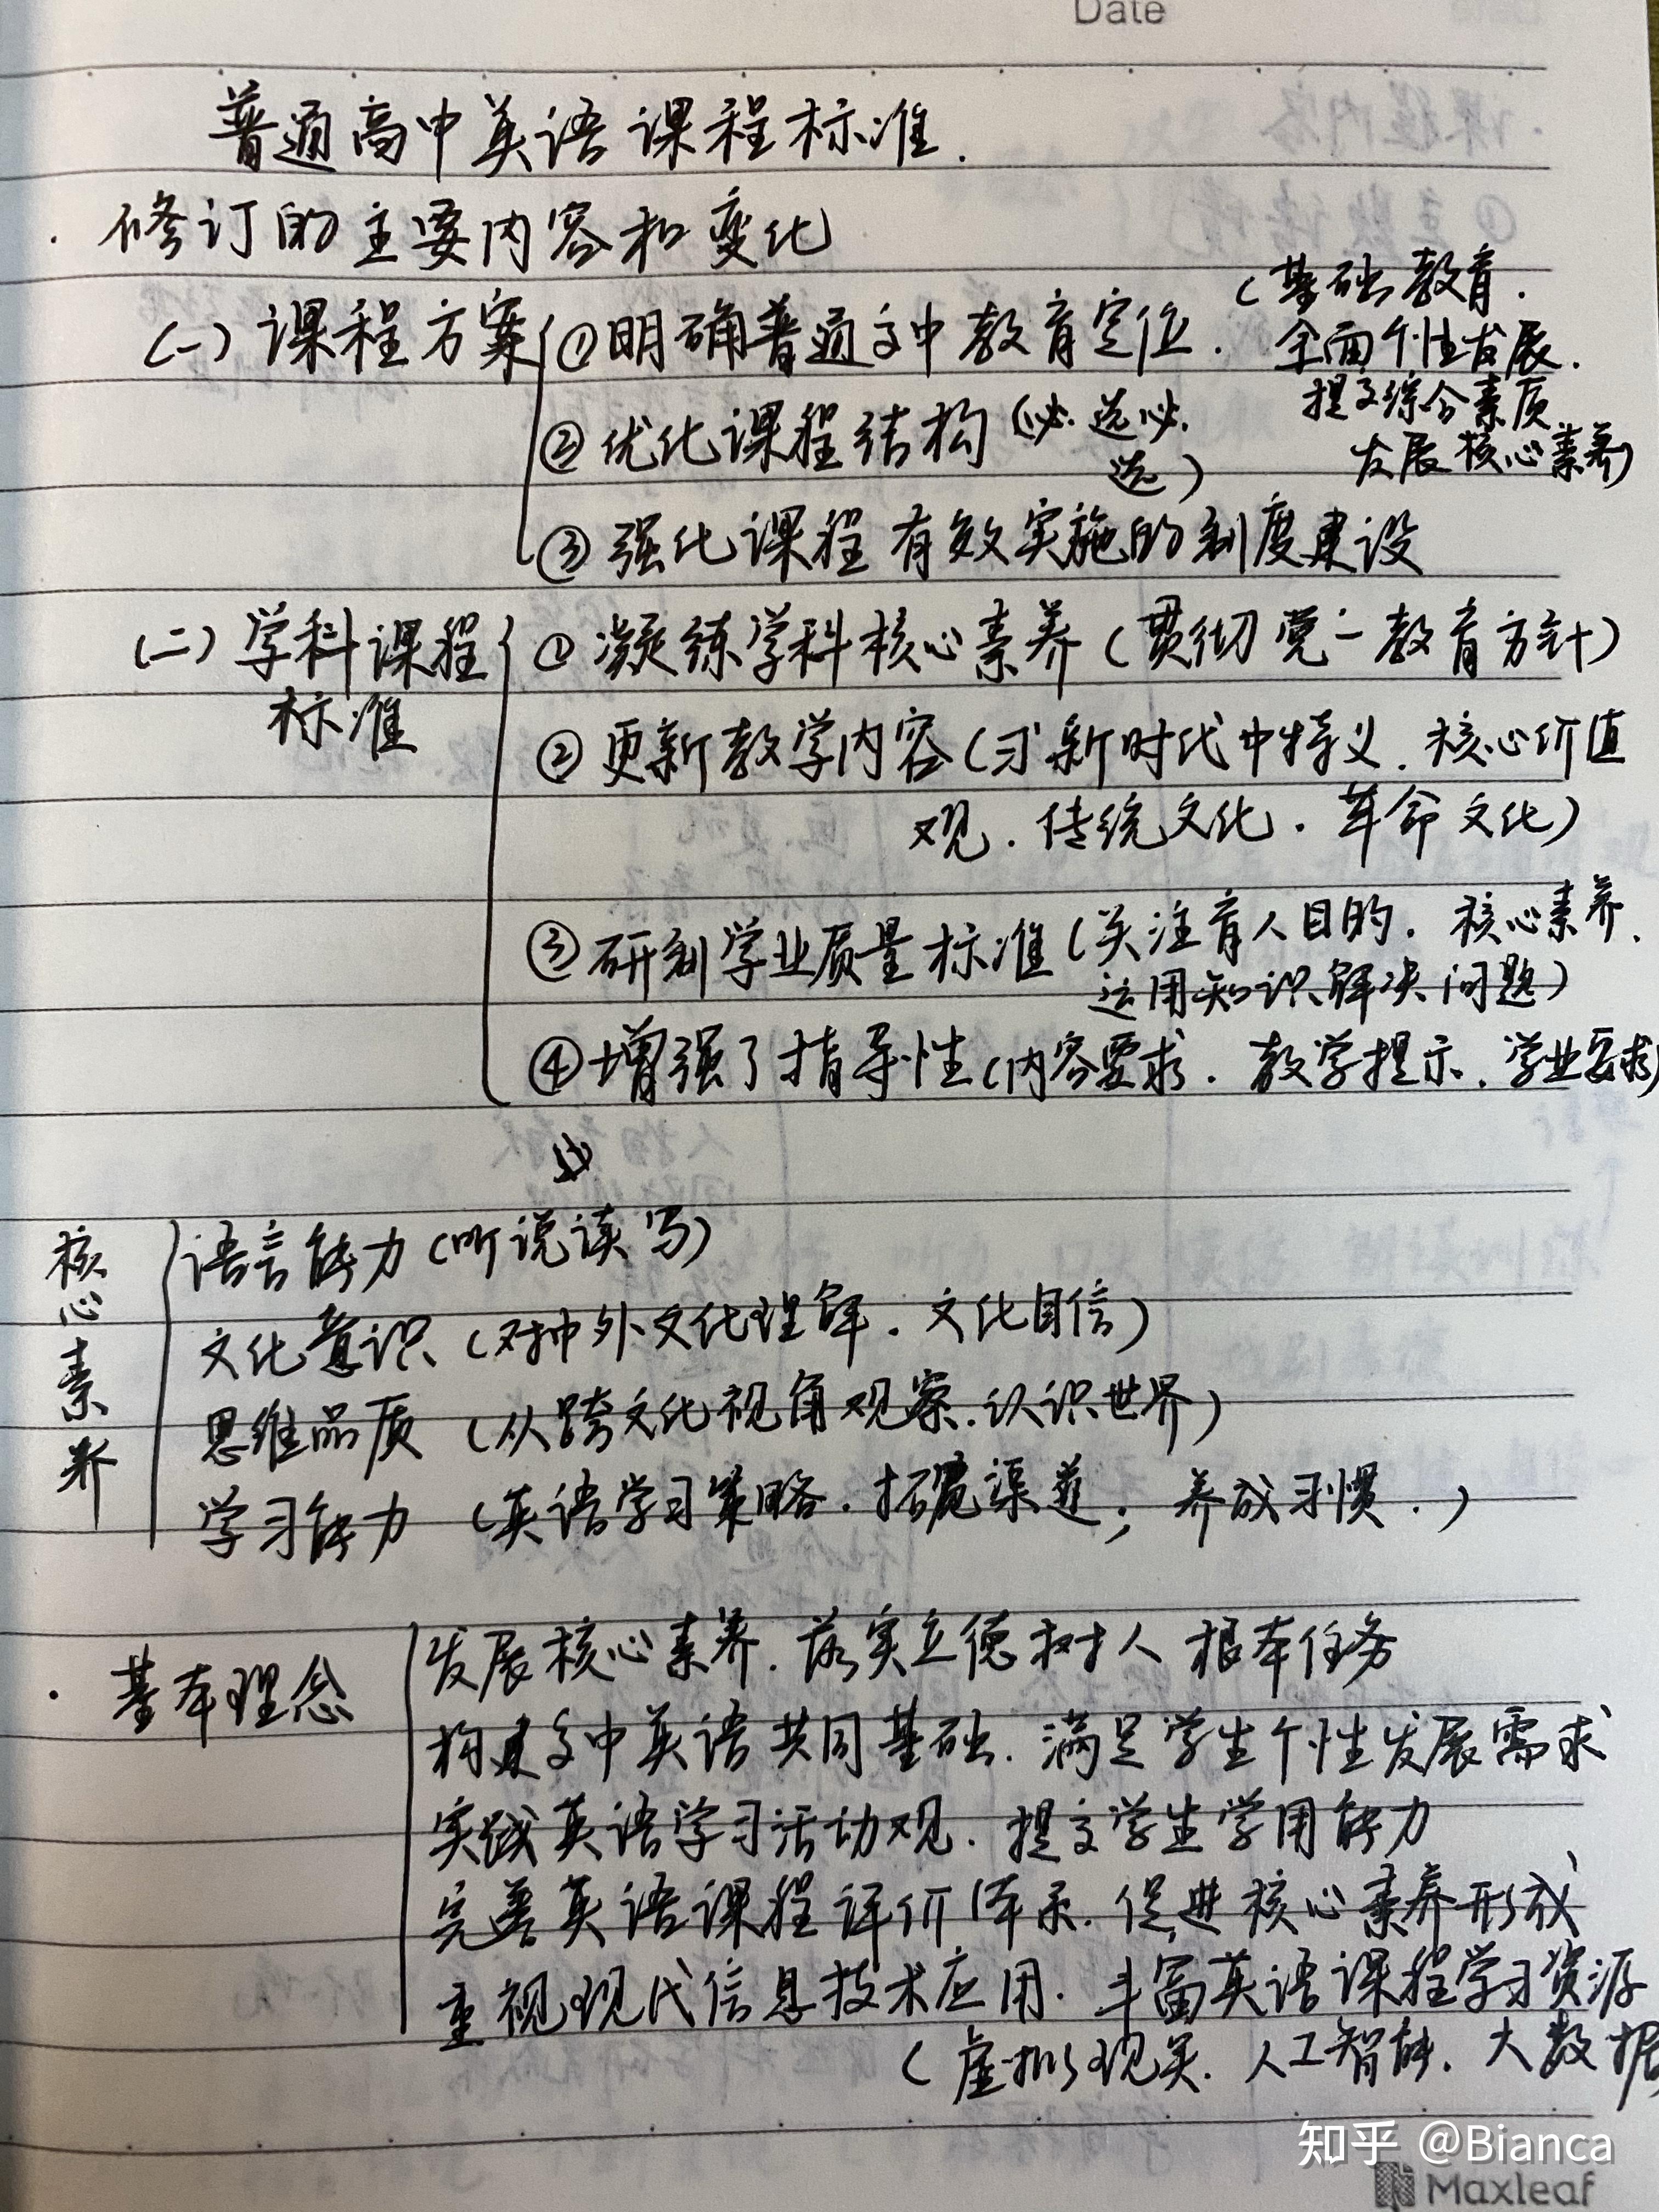 Date
普通高中英语课程标准.
· 修订的主要内容和变化
(一) 课程方案 ①明确普通高中教育定位. (基础教育.
全面个性发展.
提高综合素质
②优化课程结构 (必. 选必.
发展核心素养)
选)
③强化课程有效实施的制度建设
(二) 学科课程 ①凝练学科核心素养 (贯彻党 教育方针)
标准
②更新教学内容 (习 新时代中特义. 核心价值
观. 传统文化. 革命文化)
③研制学业质量标准 (关注育人目的. 核心素养.
运用知识解决问题)
④增强了指导性 (内容要求. 教学提示. 学业要求)
核心素养
语言能力 (听说读写)
文化意识 (对中外文化理解. 文化自信)
思维品质 (从跨文化视角观察.认识世界)
学习能力 (英语学习策略. 拓宽渠道; 养成习惯.)
· 基本理念
发展核心素养. 落实立德树人根本任务
构建高中英语共同基础. 满足学生个性发展需求
实践英语学习活动观. 提高学生学用能力
完善英语课程评价体系. 促进核心素养形成
重视现代信息技术应用. 丰富英语课程学习资源
(虚拟现实. 人工智能. 大数据
知乎 @Bianca
Maxleaf